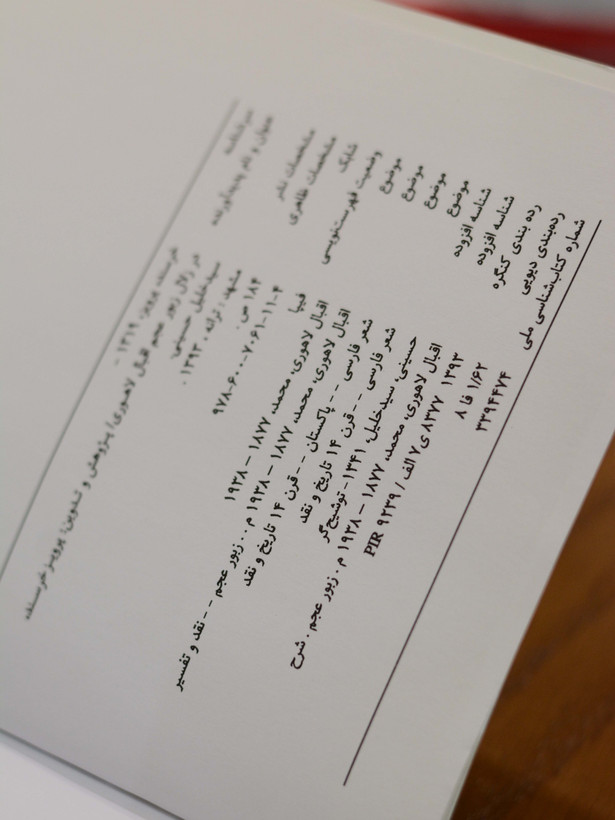 سرشناسه خرسند، پرویز، ۱۳۱۹ -
عنوان و نام پدیدآورنده در زلال زبور عجم اقبال لاهوری/ پژوهش و تدوین: پرویز خرسند،
سیدخلیل حسینی
مشخصات نشر مشهد: ترانه، ۱۳۹۳.
مشخصات ظاهری ۱۸۴ ص.
شابک ۹۷۸-۶۰۰-۷۰۶۱-۱۱-۴
وضعیت فهرست‌نویسی فیپا
موضوع اقبال لاهوری، محمد، ۱۸۷۷ – ۱۹۳۸
موضوع اقبال لاهوری، محمد، ۱۸۷۷ – ۱۹۳۸ م. . زبور عجم - - نقد و تفسیر
موضوع شعر فارسی - - پاکستان - - قرن ۱۴ تاریخ و نقد
موضوع شعر فارسی - - قرن ۱۴ تاریخ و نقد
شناسه افزوده حسینی، سیدخلیل، ۱۳۴۱- توشیح‌گر
شناسه افزوده اقبال لاهوری، محمد، ۱۸۷۷ – ۱۹۳۸ م. زبور عجم. شرح
رده بندی کنگره ۱۳۹۳ ۸۳۷۷ ی ۷ الف / PIR ۹۲۳۹
رده‌بندی دیویی ۱/۶۲ فا ۸
شماره کتاب‌شناسی ملی ۳۳۹۴۴۷۴